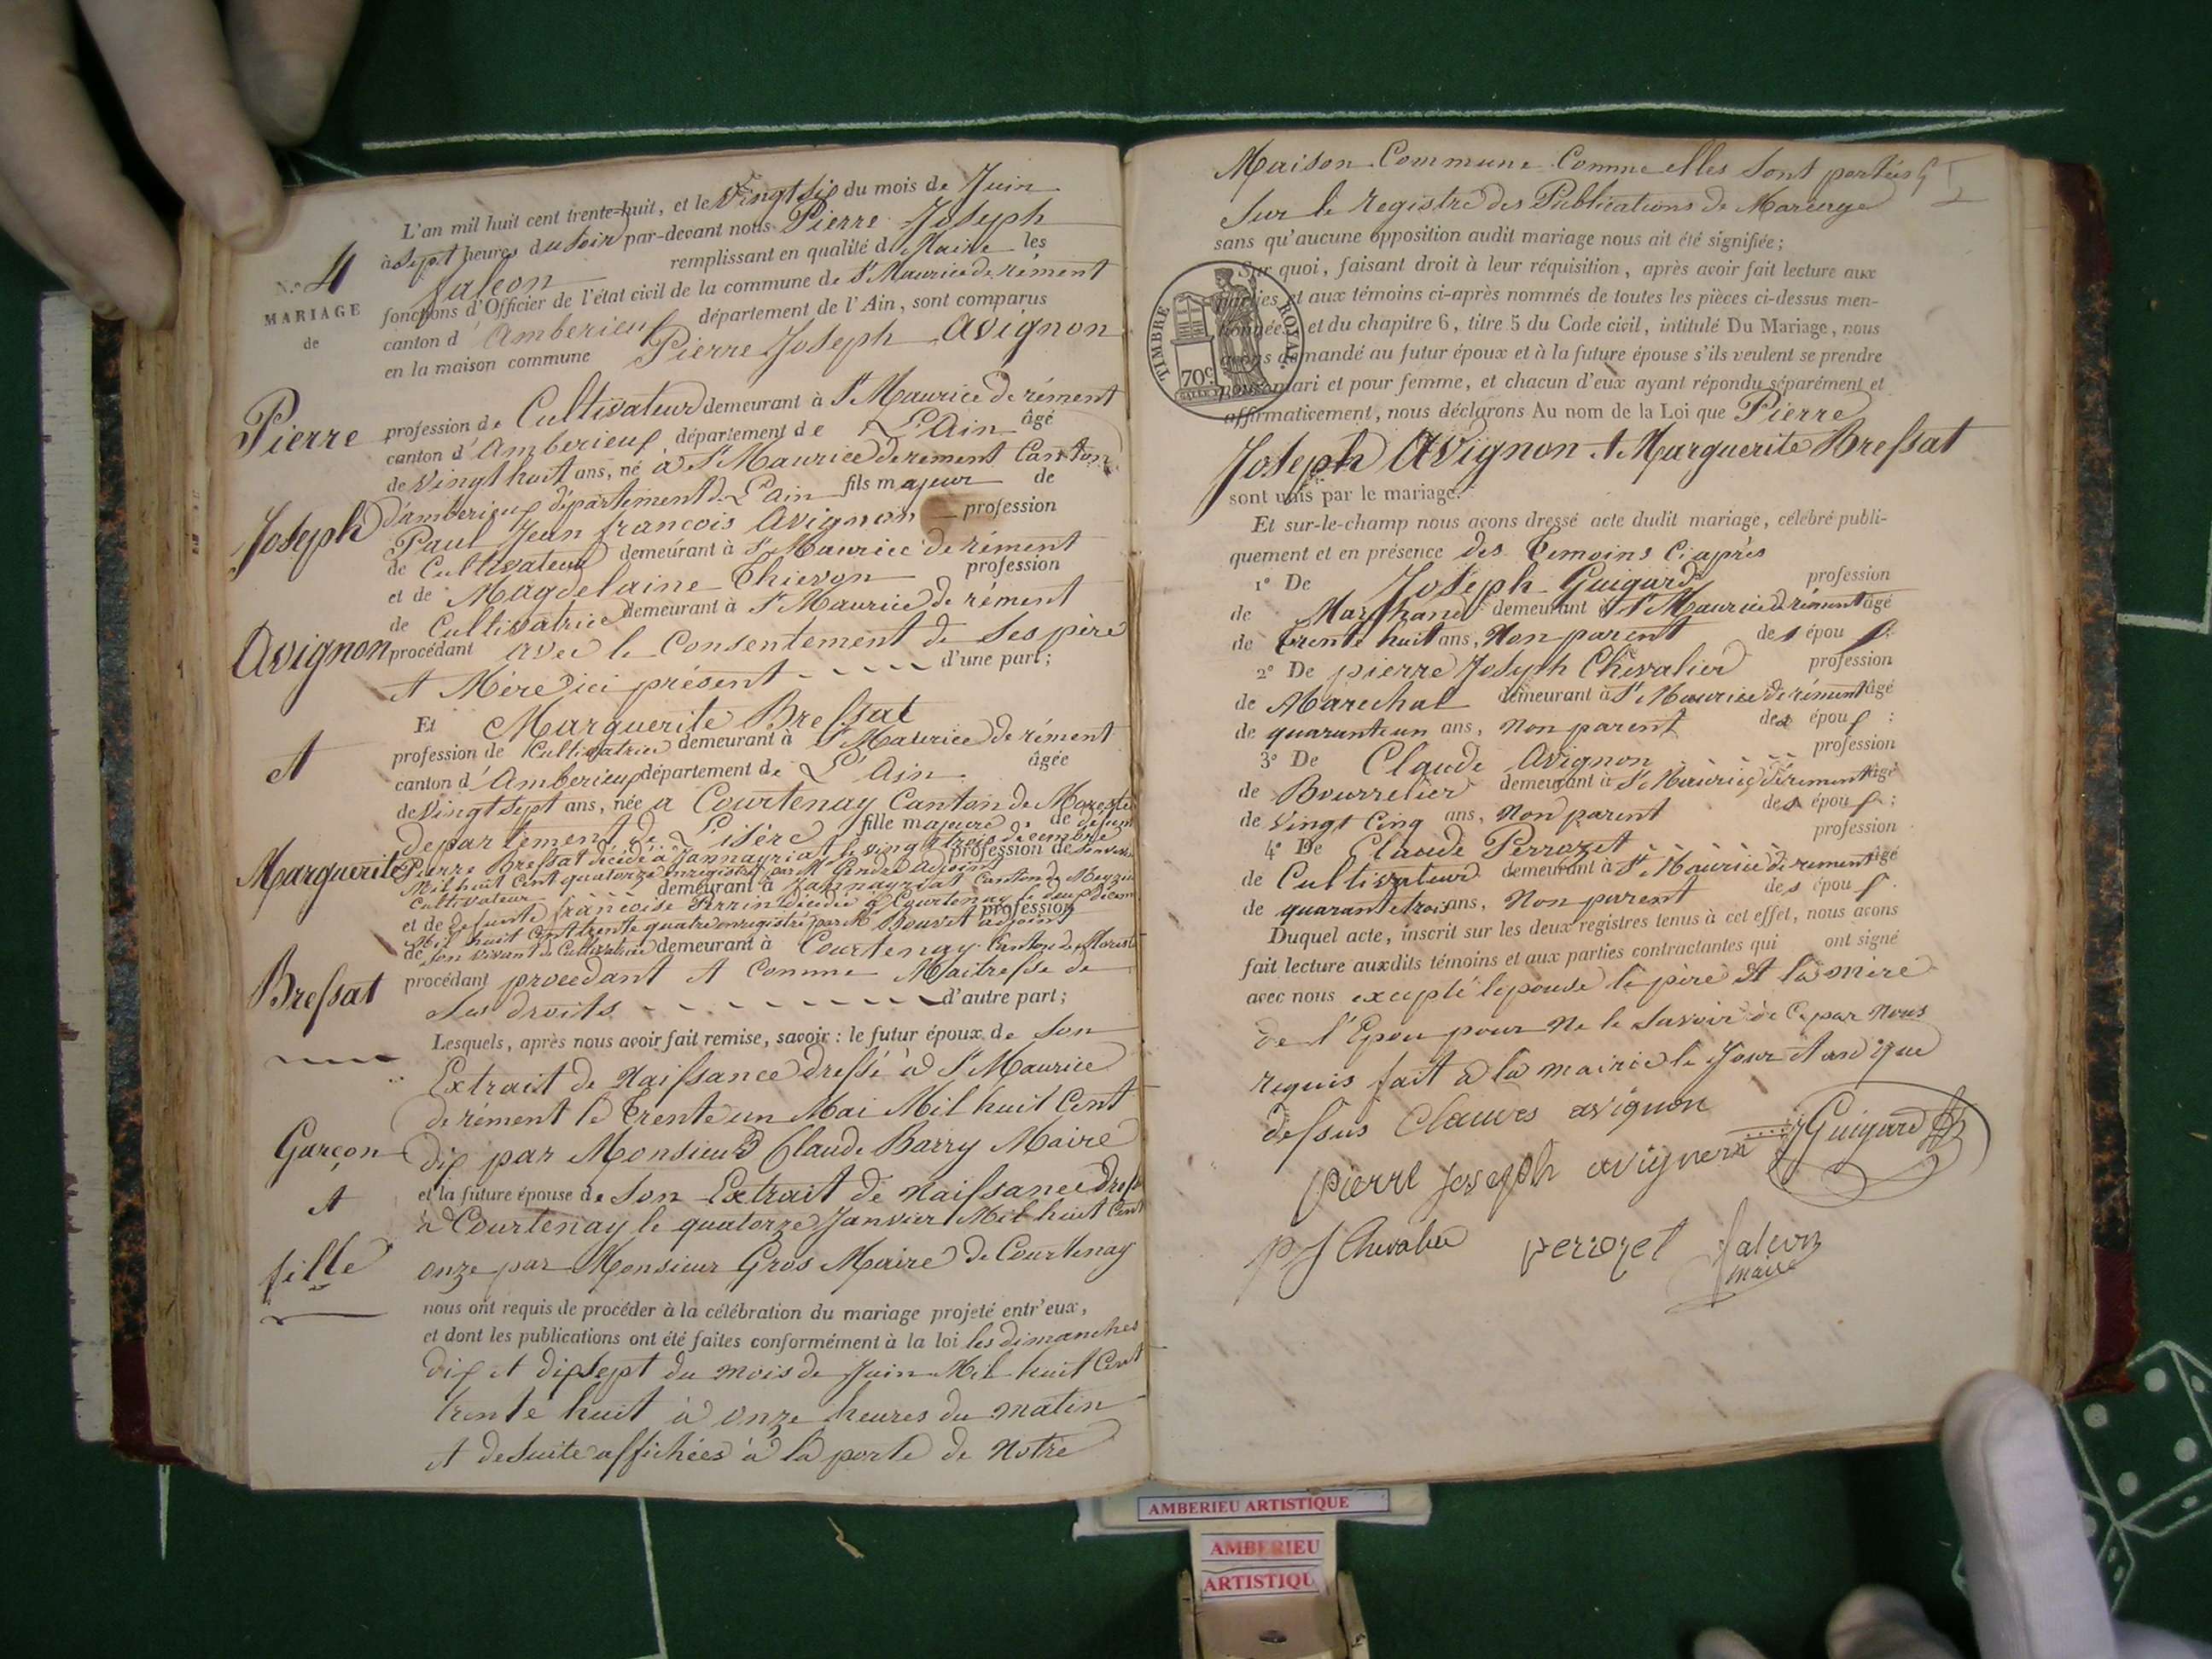 L'an mil huit cent trente-huit, et le Vingt six du mois de Juin
à sept heures du soir par-devant nous Pierre Joseph
falcon remplissant en qualité de Maire les
fonctions d'Officier de l'état civil de la commune de St Maurice de rément
canton d'Amberieux département de l'Ain, sont comparus
en la maison commune Pierre Joseph Avignon
N.º 4
MARIAGE
de
Pierre
Joseph
Avignon
et
Marguerite
Bressat
Garçon
et
fille
profession de Cultivateur demeurant à St Maurice de rément
canton d'Amberieux département de L'Ain âgé
de Vingt huit ans, né à St Maurice de rement Canton
d'amberieux département de L'ain fils majeur de
Paul Jean francois Avignon profession
de Cultivateur demeurant à St Maurice de rément
et de Magdelaine Thievon profession
de Cultivatrice demeurant à St Maurice de rément
procédant avec le Consentement de Ses père
et Mère ici présent d'une part;
Et Marguerite Bressat
profession de Cultivatrice demeurant à St Maurice de rément
canton d'Amberieux département de L'Ain âgée
de Vingt sept ans, née a Courtenay Canton de Morestel
departement de L'isère fille majeure de defunt
Pierre Bressat décédé à Jannayriat le vingt trois decembre
Mil huit Cent quatorze enregistré par M Gendre adjoint profession de Son vivant
Cultivateur demeurant à Jannayriat Canton de Meyzieu
et de defunte françoise Perrin décédée à Courtenay le deux
Mil huit Cent trente quatre enregistré par M Bouvet adjoint profession
de Son vivant de Cultivatrice demeurant à Courtenay Canton de Morestel
procédant procedant et Comme Maitresse de
Ses droits d'autre part;
Lesquels, après nous avoir fait remise, savoir : le futur époux de Son
Extrait de Naissance dressé à St Maurice
de rément le Trente un Mai Mil huit Cent
dix par Monsieur Claude Barry Maire
et la future épouse de Son Extrait de naissance dressé
à Courtenay le quatorze Janvier Mil huit Cent
onze par Monsieur Gros Maire de Courtenay
nous ont requis de procéder à la célébration du mariage projeté entr'eux,
et dont les publications ont été faites conformément à la loi les dimanches
dix et dix sept du mois de Juin Mil huit Cent
trente huit à onze heures du matin
et de Suite affichées à la porte de Notre
Maison Commune Comme elles Sont portées
Sur le Registre des Publications de Mariage
sans qu'aucune opposition audit mariage nous ait été signifiée;
Sur quoi, faisant droit à leur réquisition, après avoir fait lecture aux
parties et aux témoins ci-après nommés de toutes les pièces ci-dessus men-
tionnées et du chapitre 6, titre 5 du Code civil, intitulé Du Mariage, nous
avons demandé au futur époux et à la future épouse s'ils veulent se prendre
pour mari et pour femme, et chacun d'eux ayant répondu séparément et
affirmativement, nous déclarons Au nom de la Loi que Pierre
TIMBRE ROYAL
70c
Joseph Avignon et Marguerite Bressat
sont unis par le mariage.
Et sur-le-champ nous avons dressé acte dudit mariage, célébré publi-
quement et en présence des Temoins Ci après
1º De Joseph Guigard profession
de Marchand demeurant à St Maurice de rément âgé
de trente huit ans, Non parent des époux
2º De pierre Joseph Chevalier profession
de Marechal demeurant à St Maurice de rément âgé
de quarante un ans, non parent des époux ;
3º De Claude Avignon profession
de Bourrelier demeurant à St Maurice de rement âgé
de Vingt Cinq ans, Non parent des époux ;
4º De Claude Perrozet profession
de Cultivateur demeurant à St Maurice de rement âgé
de quarante trois ans, Non parent des époux.
Duquel acte, inscrit sur les deux registres tenus à cet effet, nous avons
fait lecture auxdits témoins et aux parties contractantes qui ont signé
avec nous excepté l'epouse le père et la mère
de l'Epou pour ne le Savoir de Ce par Nous
requis fait à la mairie le Jour et an que
dessus Claudes avignon
Guigard
pierre joseph avignon
p J Chevalier perrozet falcon
maire
AMBERIEU ARTISTIQUE
AMBERIEU
ARTISTIQU